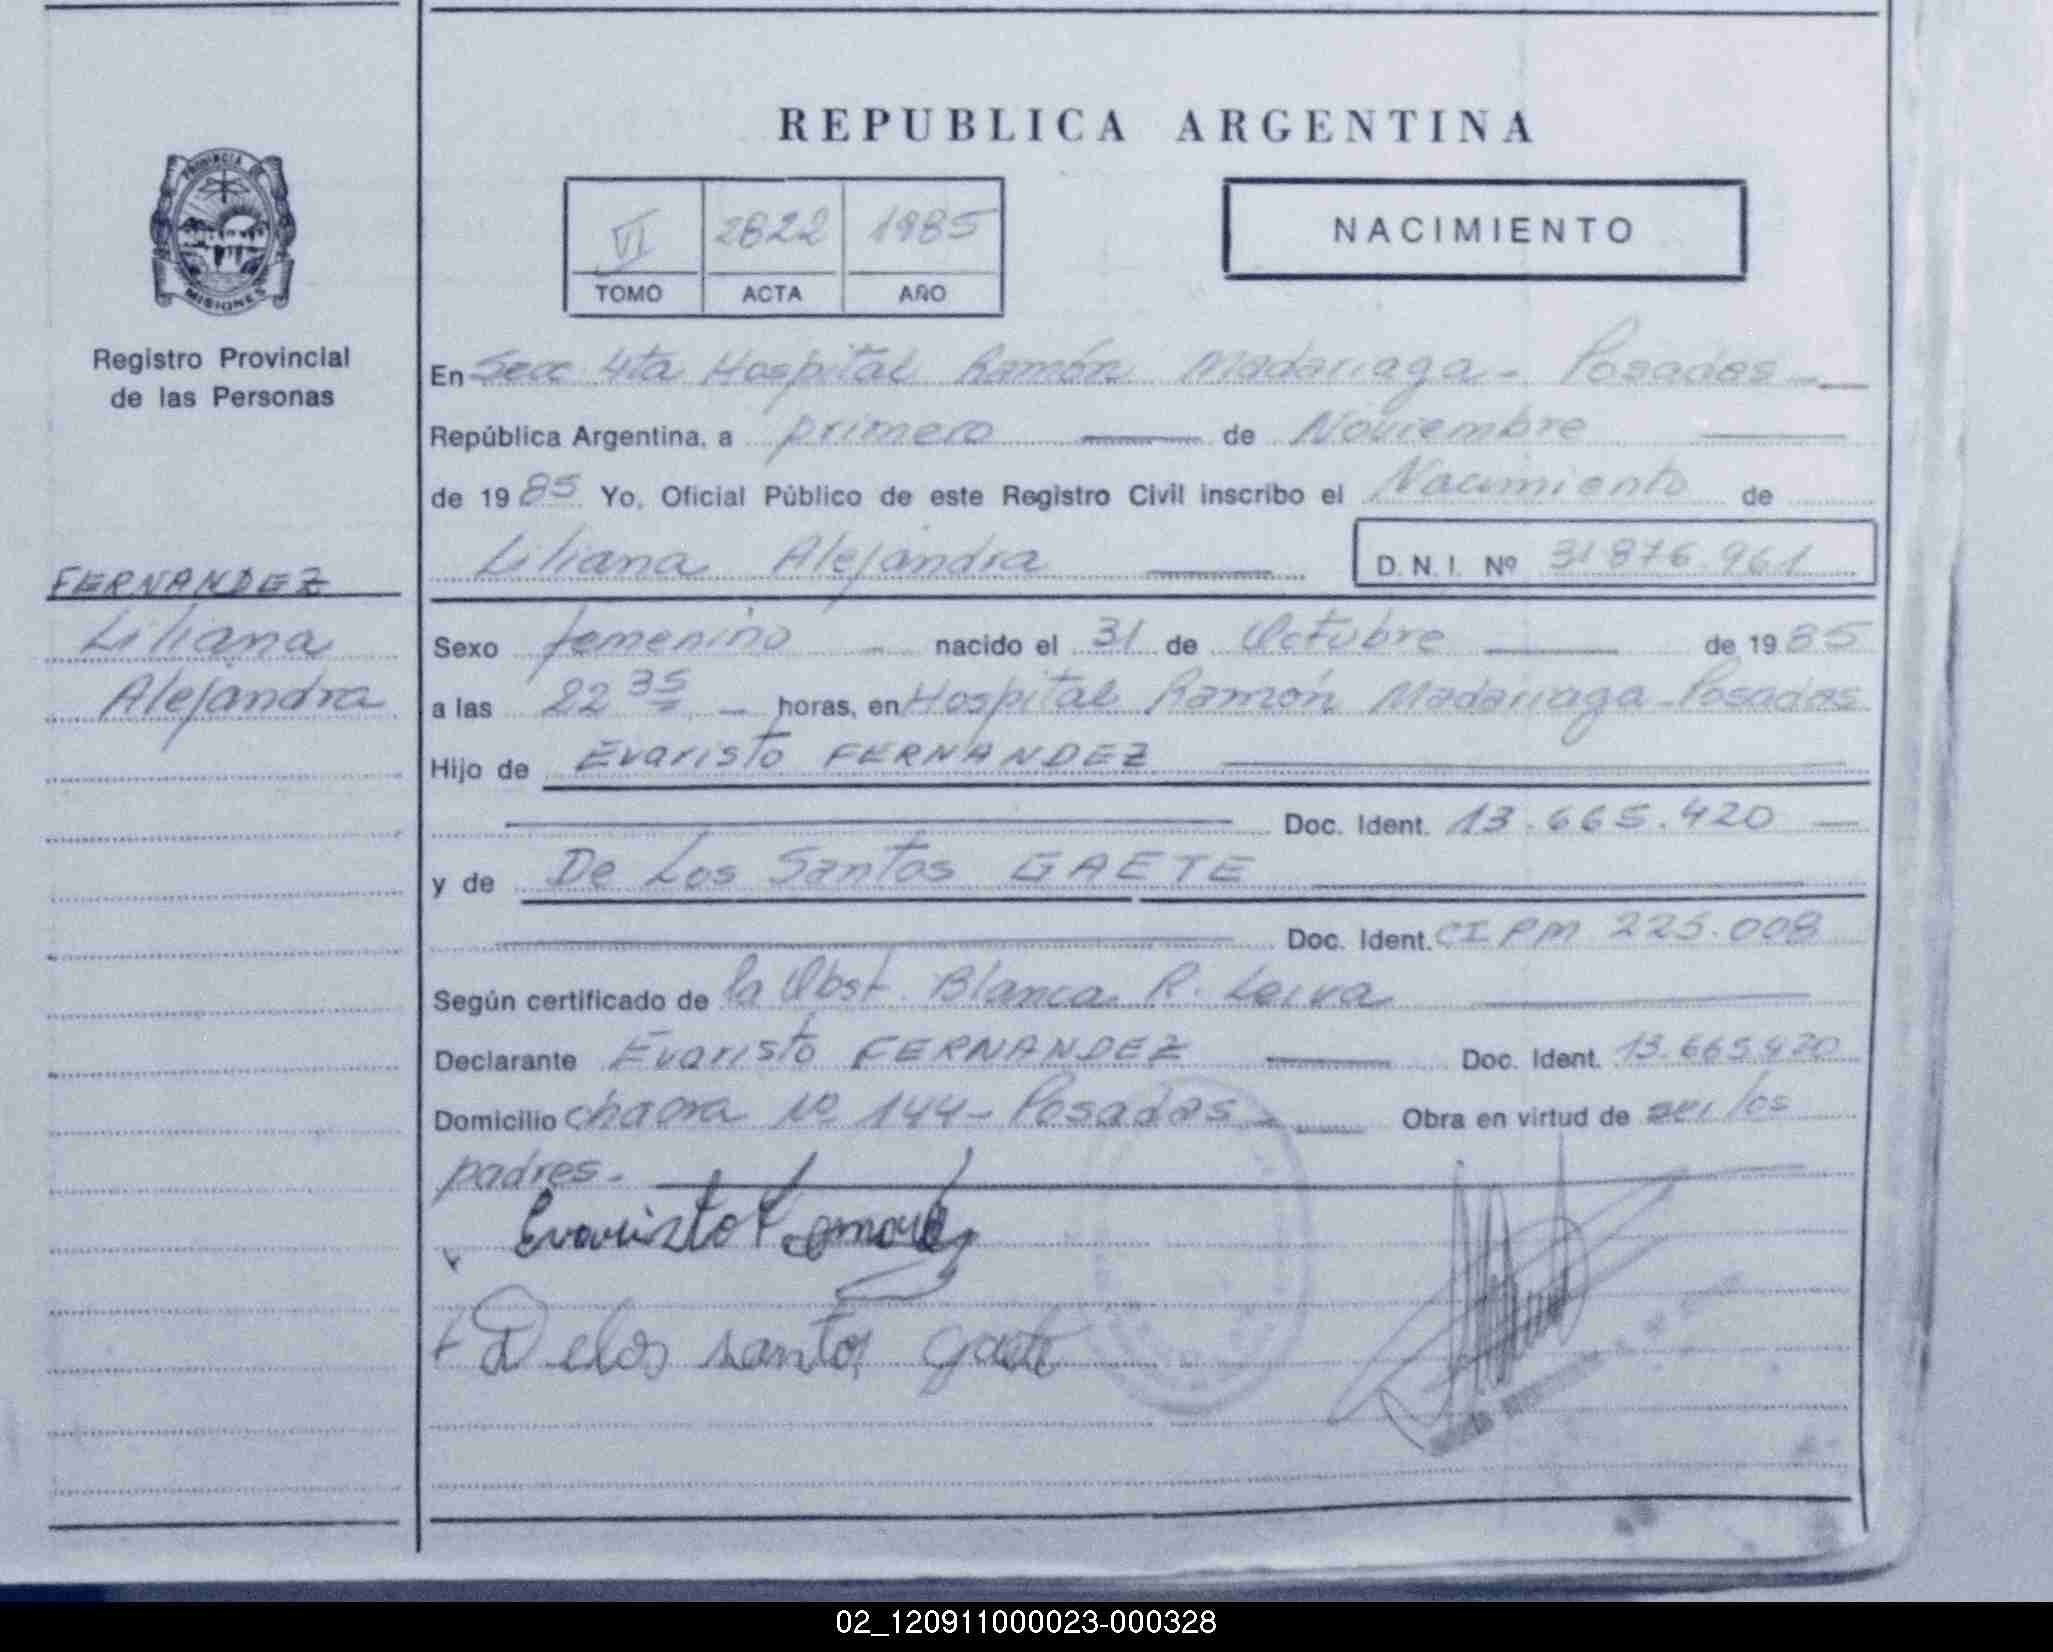 REPUBLICA ARGENTINA
PROVINCIA DE
MISIONES
Registro Provincial
de las Personas
VI 2822 1985
TOMO ACTA AÑO
NACIMIENTO
En Secc 4ta Hospital Ramón Madariaga - Posadas
República Argentina, a primero de Noviembre
de 1985 Yo, Oficial Público de este Registro Civil inscribo el Nacimiento de
Liliana Alejandra D. N. I. Nº 31876.961
FERNANDEZ
Liliana
Alejandra
Sexo femenino nacido el 31 de Octubre de 1985
a las 22 35 horas, en Hospital Ramón Madariaga - Posadas
Hijo de Evaristo FERNANDEZ
Doc. Ident. 13.665.420
y de De Los Santos GAETE
Doc. Ident. CI PM 225.008
Según certificado de la Obst. Blanca R. Leiva
Declarante Evaristo FERNANDEZ Doc. Ident. 13.665420
Domicilio chacra Nº 144 - Posadas - Obra en virtud de ser los
padres.
Evaristo Fernandez
De los santos gaete
02_120911000023-000328